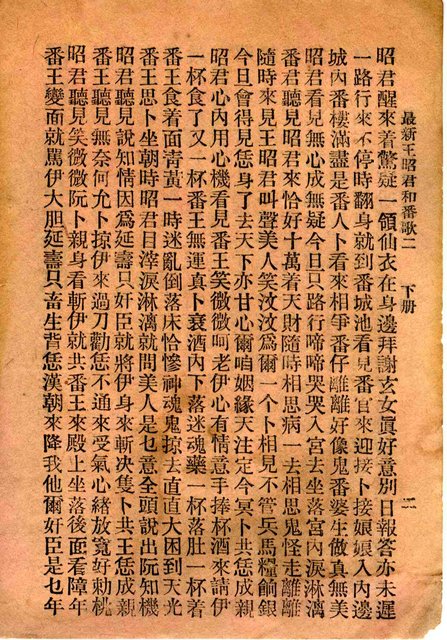 最新王昭君和番歌二 下册 二
昭君醒來着驚疑一領仙衣在身邊拜謝玄女眞好意別日報答亦未遲
一路行來不停時翻身就到番城池看見番官來迎接卜接娘娘入內邊
城內番樓滿盡是番人卜看來相爭番仔離離好像鬼番婆生做真無美
昭君看見無心成無疑今旦只路行啼啼哭哭入宮去坐落宮內淚淋漓
番君聽見昭君來恰好十萬着天財隨時相思病一去相思鬼怪走離離
隨時來見王昭君叫聲美人笑汶汶爲爾一个卜相見不管兵馬糧餉銀
今旦會得見恁身了去天下亦甘心爾咱姻緣天注定今冥卜共恁成親
昭君心內用心機看見番王笑微微呵老伊心有情意手捧杯酒來請伊
一杯食了又一杯番王無運真卜衰酒內下落迷魂藥一杯落肚一杯着
番王食着面青黃一時迷亂倒落床恰慘神魂鬼掠去直直大困到天光
番王思卜坐朝時昭君目滓淚淋漓就問美人是乜意全頭說出阮知機
昭君聽見說知情因爲延壽只奸臣就將伊身來斬决隻卜共王恁成親
番王聽見無奈何允卜掠伊來過刀勸恁不通來受氣心緒放寬好勅桃
昭君聽見笑微微阮卜親身看斬伊就共番王來殿上坐落後面看障年
番王變面就罵伊大胆延壽只畜生背恁漢朝來降我他爾奸臣是乜年